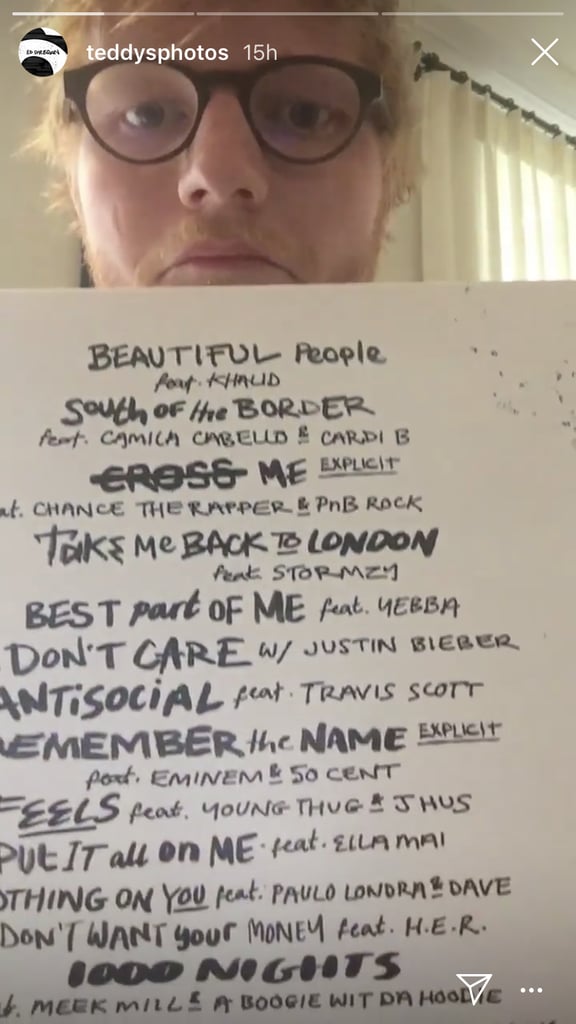 teddysphotos 15h
BEAUTIFUL People
feat. KHALID
South OF the BORDER
feat. CAMILA CABELLO & CARDI B
CROSS ME EXPLICIT
at. CHANCE THE RAPPER & PnB ROCK
TAKE Me BACK TO LONDON
feat. STORMZY
BEST part OF ME feat. YEBBA
DON'T CARE w/ JUSTIN BIEBER
ANTiSOCiAL feat. TRAVIS SCOTT
EMEMBER the NAME EXPLICIT
feat. EMINEM & 50 CENT
FEELS feat. YOUNG THUG & J HUS
PUT IT all on ME. feat. ELLA MAI
OTHING ON YOU feat. PAULO LONDRA & DAVE
DON'T WANT your MONEY feat. H.E.R.
1000 NIGHTS
at. MEEK MILL & A BOOGIE WIT DA HOODIE